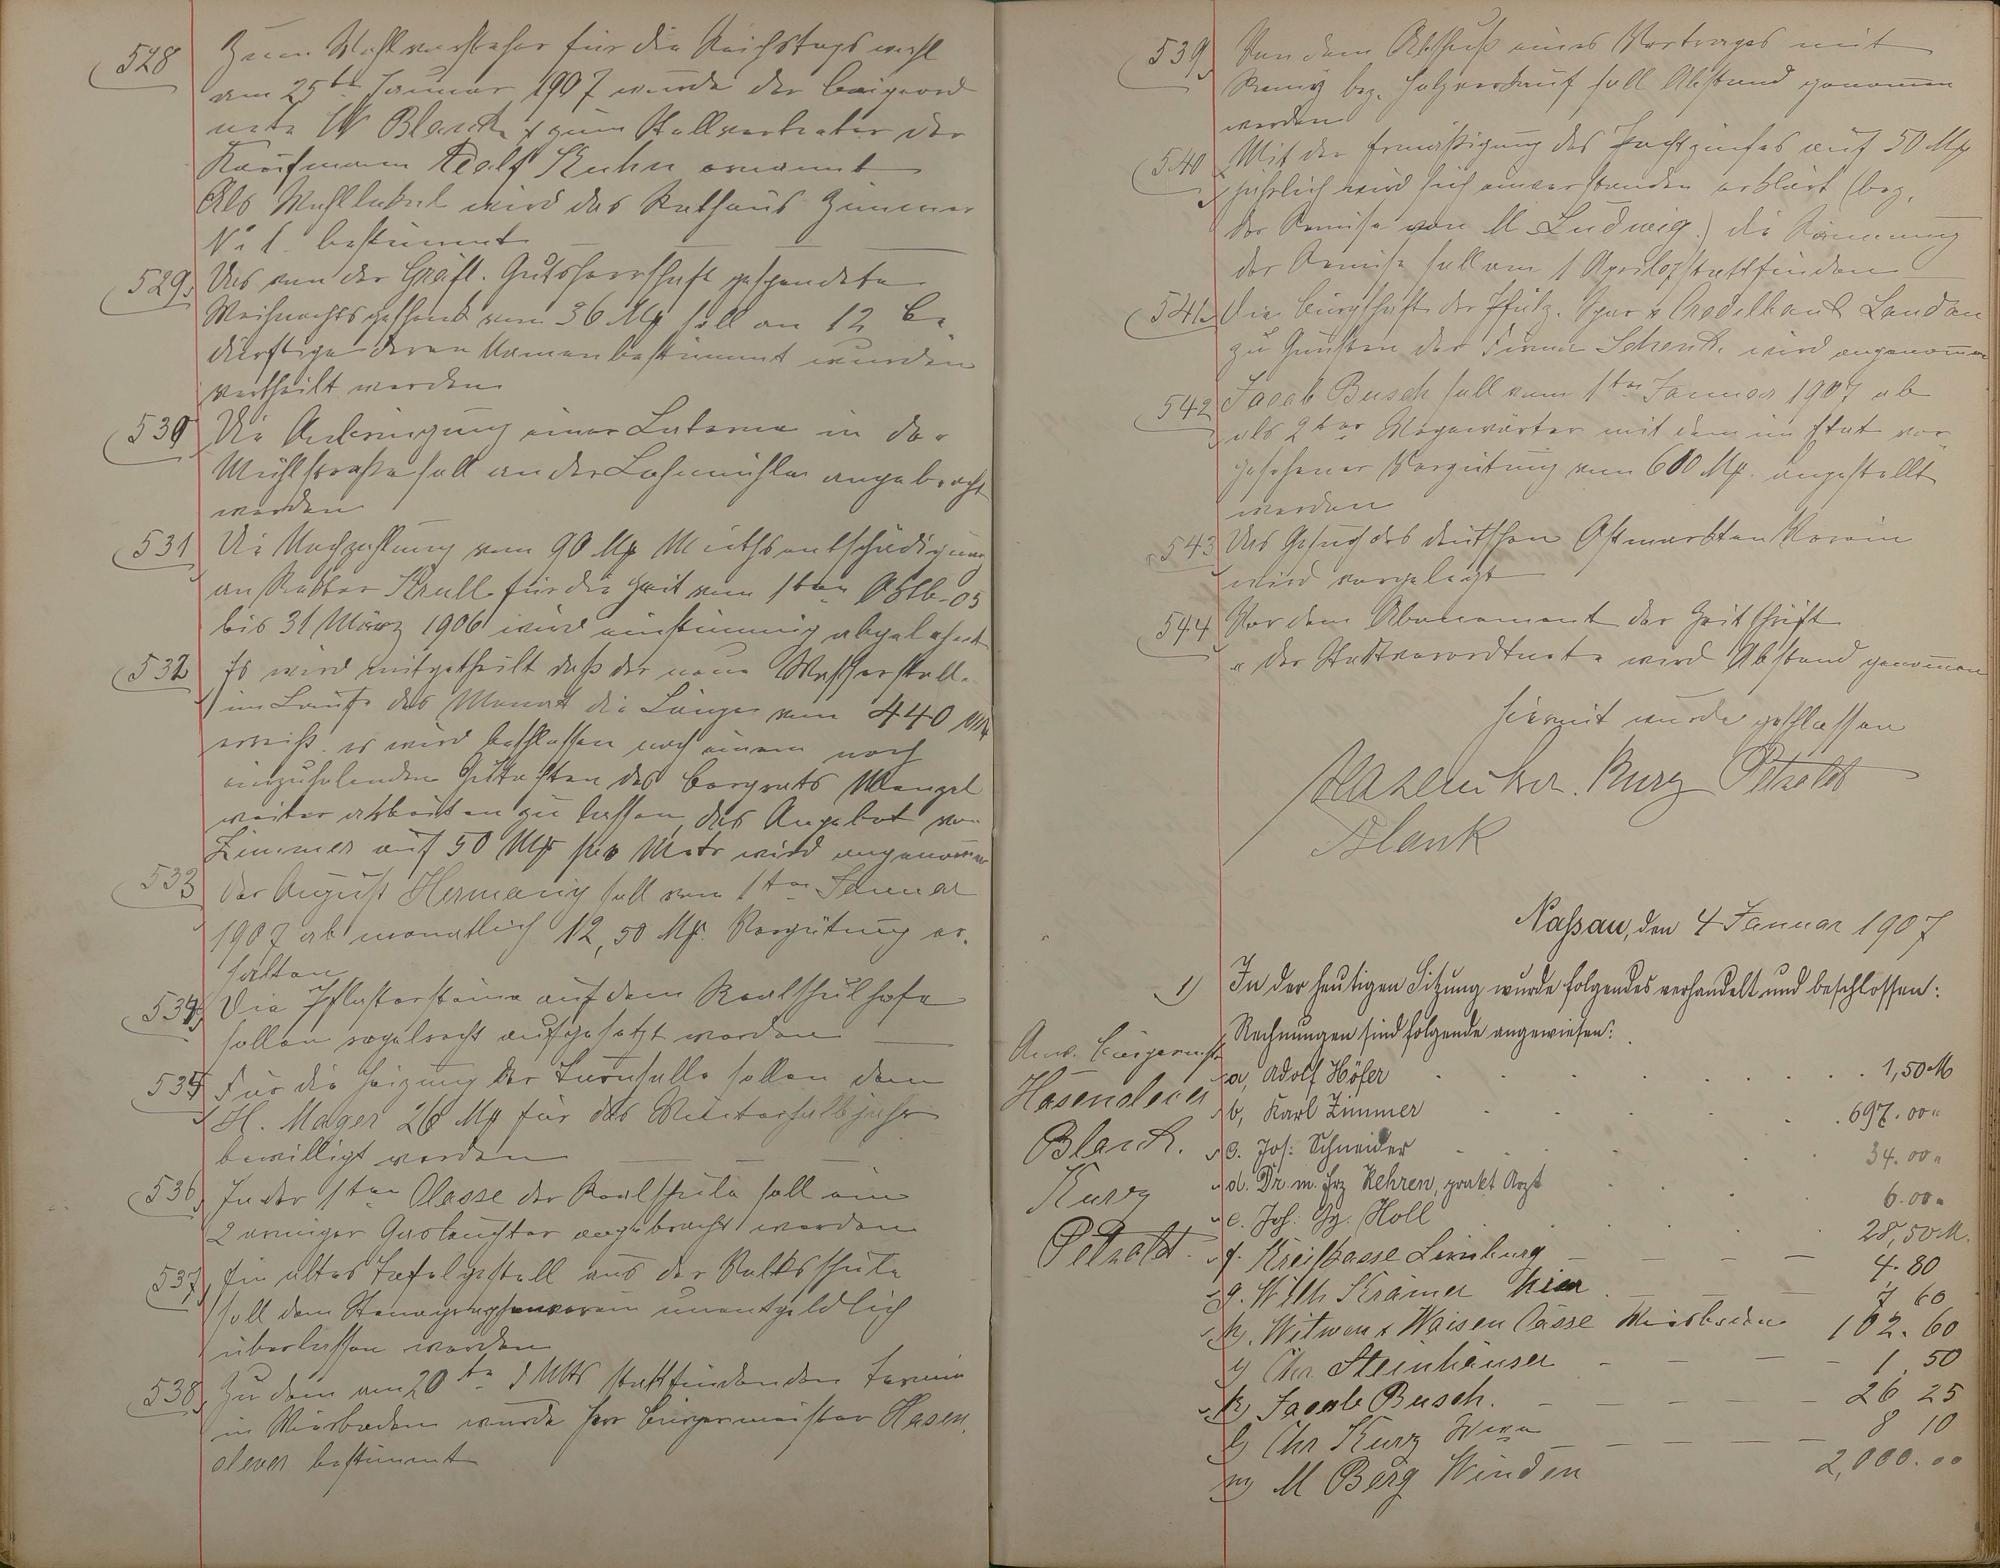 528 Zum Wahlvorsteher für die Reichstagswahl
am 25ten Januar 1907 wurde der Beigeord
nete W Blank & zum Stellvertreter der
Kaufmann Adolf Kuhn ernannt
Als Wahllokal wird das Rathaus Zimmer
No 1. bestimmt
529. Das von der Gräfl. Gutsherrschaft gespendete
Weihnachtsgeschenk von 36 Mk soll an 12 Be
dürftige deren Namen bestimmt wurden
vertheilt werden
530 Die Anbringung einer Laterne in der
Mühlstraße soll an der Lohmühle angebracht
werden
531 Die Nachzahlung von 90 Mk Miethsentschädigung
an Rektor Krull für die Zeit vom 1ten Oktb. 05
bis 31 März 1906 wird einstimmig abgelehnt
532 Es wird mitgetheilt daß der neue Wasserstoll.
im Laufe des Monat die Länge von 440 Mtr
erreicht. es wird beschlossen nach einem noch
einzuholenden Gutachten des Bergrats Menzel
weiter arbeiten zu lassen, das Angebot von
Zimmer auf 50 Mk per Mtr wird angenommen
533 Der August Hermany soll vom 1ten Januar
1907 ab monatlich 12,50 Mk. Vergütung er.
halten
534 Die Pflastersteine auf dem Realschulhofe
sollen regelrecht aufgesetzt werden
535 Für die Heizung der Turnhalle sollen dem
H. Mager 26 Mk für das Winterhalbjahr
bewilligt werden
536. In der 1ten Classe der Realschule soll ein
2 armiger Gasleuchter angebracht werden
537, Ein altes Tafelgestell aus der Volksschule
soll dem Stenographenverein unentgeldlich
überlassen werden
538, Zu dem am 20ten d Mts stattfindenden Termin
in Wiesbaden wurde Herr Bürgermeister Hasen.
clever bestimmt
539, Von dem Abschluß eines Vertrages mit
Remy bez. Holzverkauf soll Abstand genommen
werden
540 Mit der Ermäßigung des Pachtzinses auf 50 Mk
jährlich wird sich einverstanden erklärt (bez.
der Remise von M. Ludwig.) die Räumung
der Remise soll am 1 April 07 stattfinden
541. Die Bürgschaft der Pfälz. Spar & Creditbank Landau
zu Gunsten der Firma Schenk, wird angenommen
542 Jacob Busch soll vom 1ten Januar 1907 ab
als 2ter Wegewärter mit dem im Etat vor
gesehener Vergütung von 600 Mk. angestellt
werden
543 Das Gesuch des deutschen Ostmarkten Verein
wird vorgelegt
544 Vor dem Abonnement der Zeitschrift
" der Stadtverordnete wird Abstand genommen
Hiermit wurde geschlossen
Hasenclever. Kurz Petzoldt
Blank
Nassau, den 4 Januar 1907
1) In der heutigen Sitzung wurde folgendes verhandelt und beschlossen:
Rechnungen sind folgende angewiesen:
Anw. Bürgermstr
Hasenclever
Blank.
Kurz
Petzoldt.
a, Adolf Höfer 1,50 M
b, Karl Zimmer 697.00 "
c. Jos: Schneider 34.00 "
d. Dr. m. Frz Rehren, prakt Arzt 6.00 "
e. Joh: Gg. Holl 28,50 M.
f. Kreiskasse Limburg 4.80
g. Wilh Krämer hier 7 60
h). Witwen & Waisen Casse Wiesbaden 102.60
i) Chr. Steinhäuser 1.50
k) Jacob Busch. 26 25
l) Chr Kurz 8 10
m) M Berg Winden 2,000.00